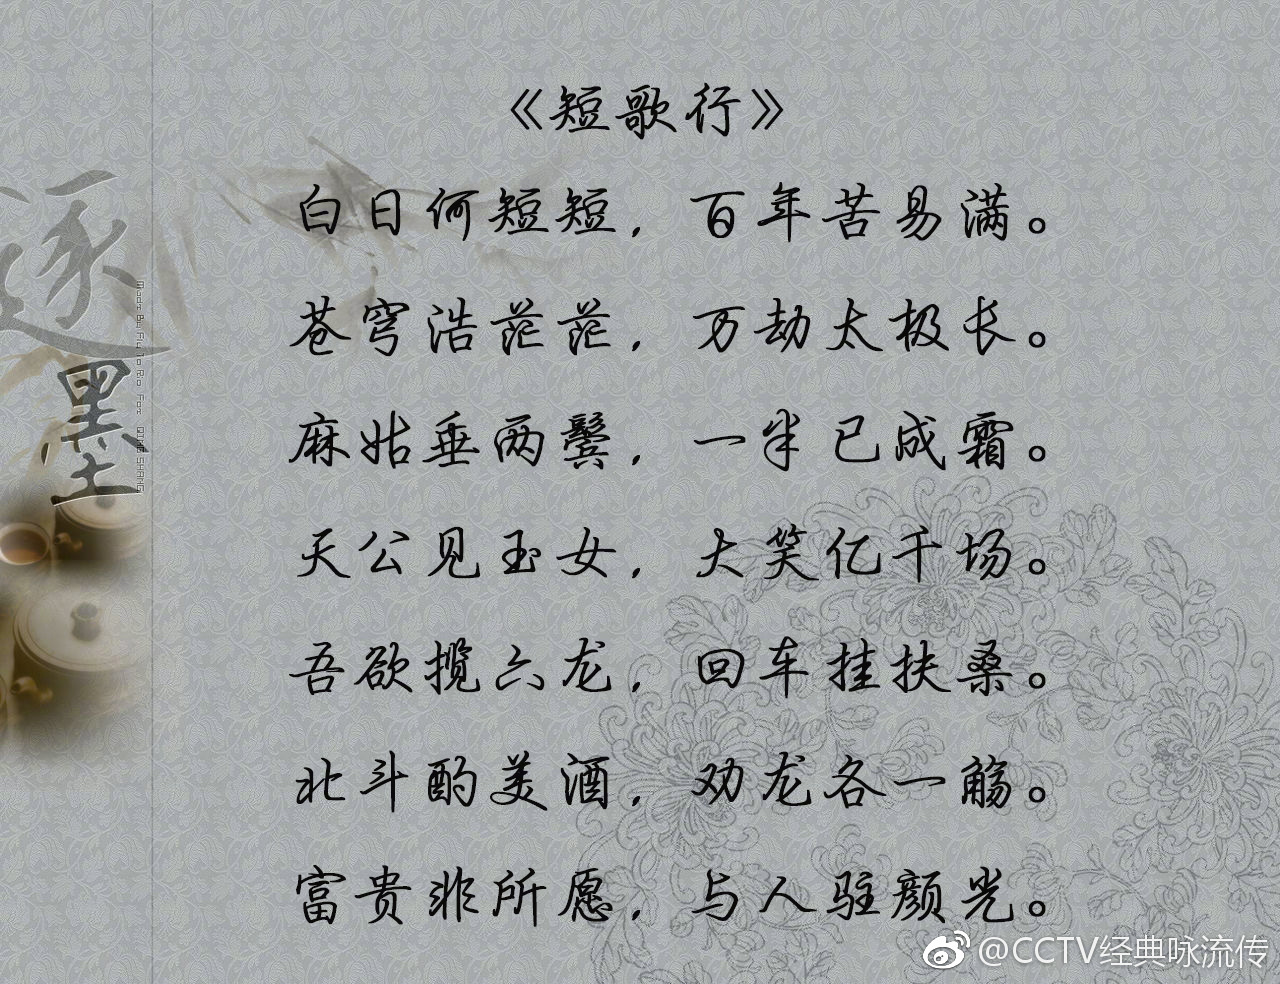 《短歌行》
白日何短短，百年苦易满。
苍穹浩茫茫，万劫太极长。
麻姑垂两鬓，一半已成霜。
天公见玉女，大笑亿千场。
吾欲揽六龙，回车挂扶桑。
北斗酌美酒，劝龙各一觞。
富贵非所愿，与人驻颜光。
逐墨
@CCTV经典咏流传